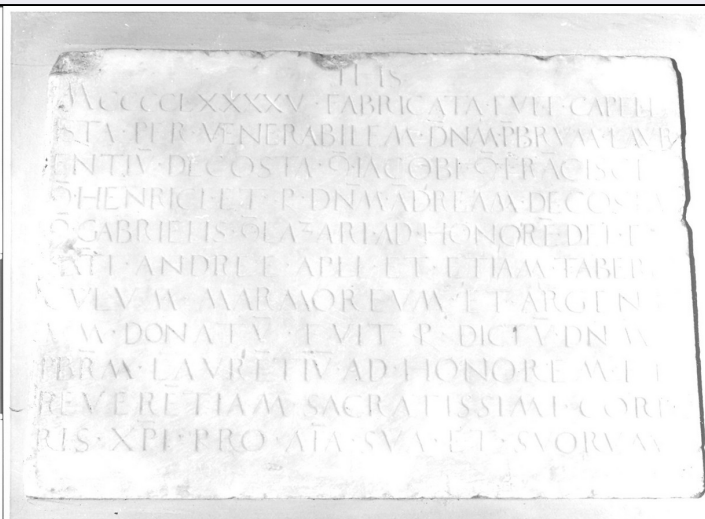 IHS
MCCCCLXXXXV · FABRICATA · FVIT · CAPELL
ISTA · PER · VENERABILEM · DN̄M · P̄BRVM · LAVR
ENTIV̄ · DECOSTA · Q̄ · IACOBI · Q̄ · FRĀCISCI
Q̄ · HENRICI · ET · P · DN̄M · ĀDREAM · DECOSTA
Q̄ · GABRIELIS · Q̄ · LAZARI · AD · HONORĒ · DEI · E
ANDREE · APLI · ET · ETIAM · TABER
CVLVM · MARMOREVM · ET · ARGEN
VM · DONATV̄ · FVIT · P · DICTV̄ · DN̄M
P̄BRM · LAVRĒTIV̄ · AD · HONOREM · ET
REVERĒTIAM · SACRATISSIMI · CORP
RIS · XP̄I · PRO · AĪA · SVA · ET · SVORVM